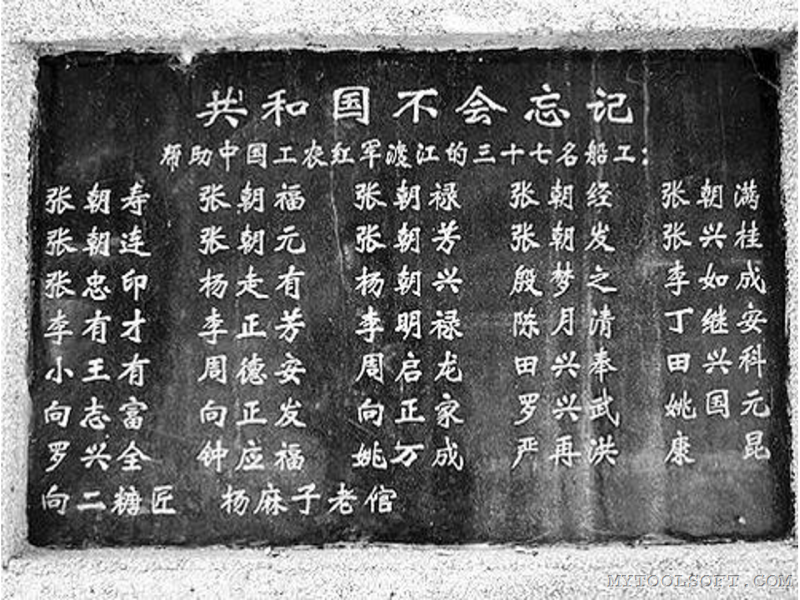 共和国不会忘记
帮助中国工农红军渡江的三十七名船工：
张朝寿 张朝福 张朝禄 张朝经 张朝满
张朝连 张朝元 张朝芳 张朝发 张兴桂
张忠印 杨走有 杨朝兴 殷梦之 李如成
李有才 李正芳 李明禄 陈月清 丁继安
小王有 周德安 周启龙 田兴奉 田兴科
向志富 向正发 向正家 罗兴武 姚国元
罗兴全 钟应福 姚万成 严再洪 康昆
向二糖匠 杨麻子老倌
MYTOOLSOFT.COM